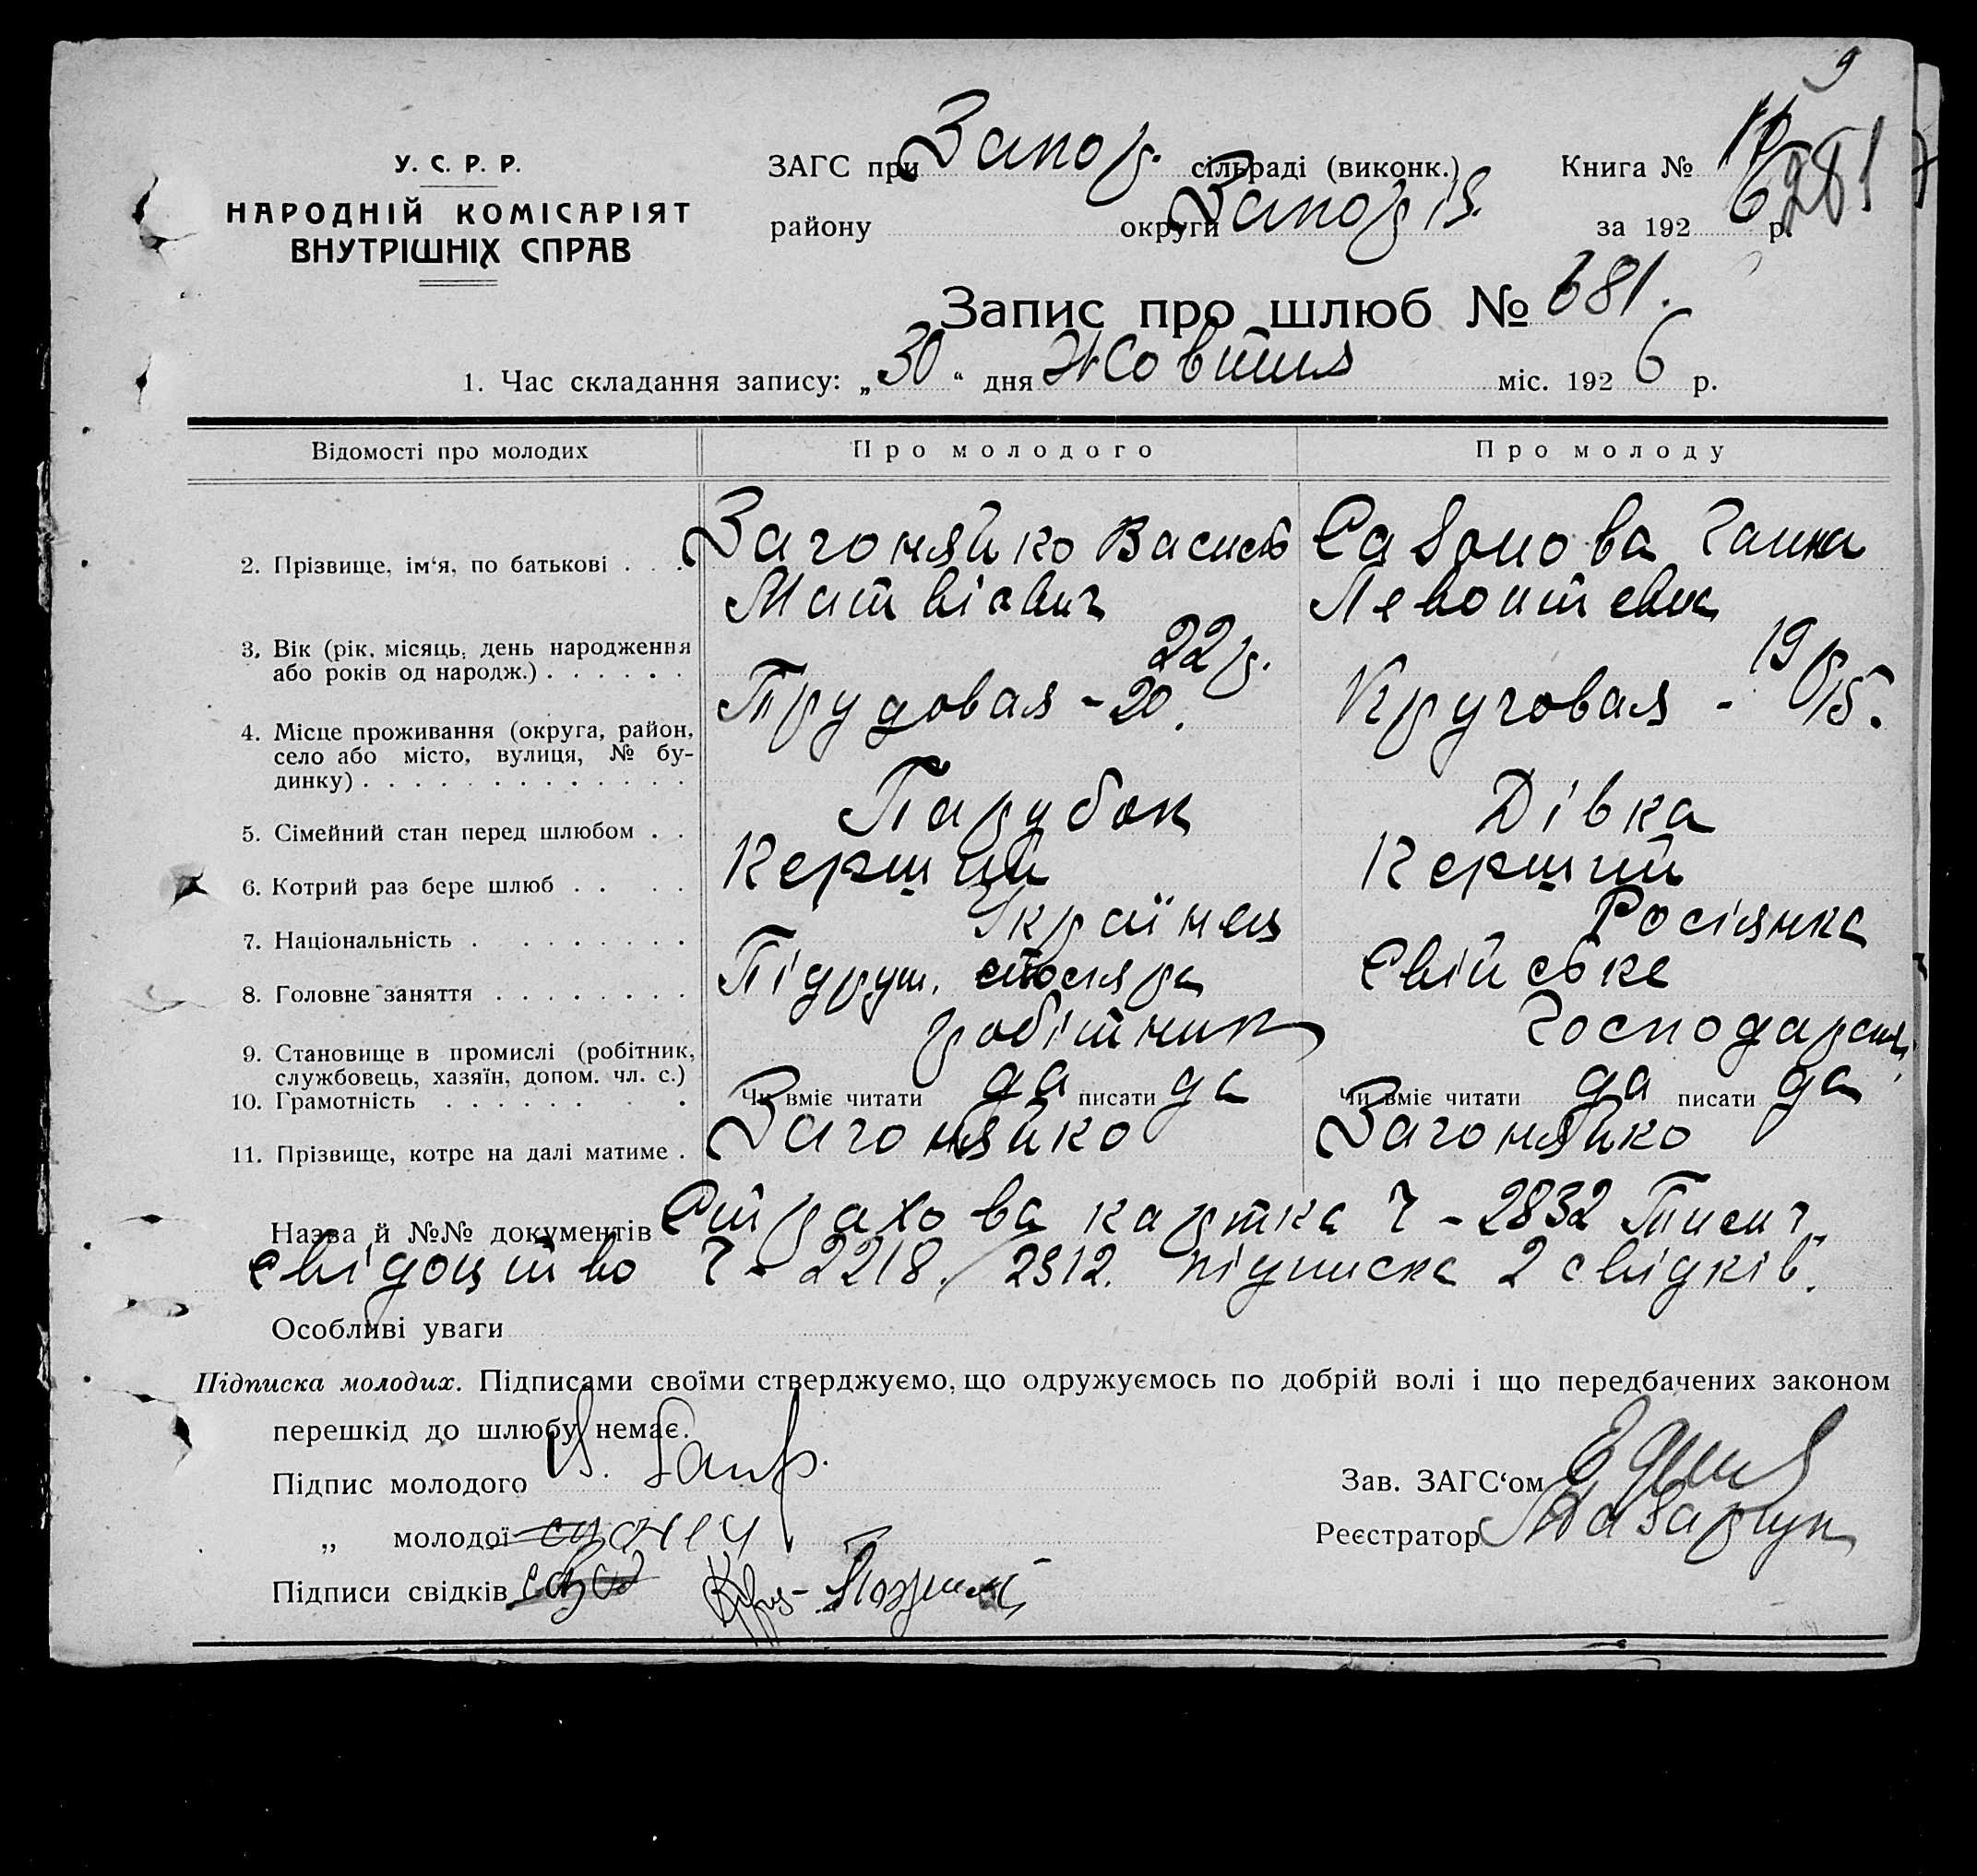 9
У. С. Р. Р.
НАРОДНІЙ КОМІСАРІЯТ
ВНУТРІШНІХ СПРАВ
ЗАГС при Запор. сільраді (виконк.) Книга №
району округи Запоріз. за 192 6 р.
281
Запис про шлюб № 681.
1. Час складання запису: „30“ дня Жовтня міс. 1926 р.
Відомості про молодих Про молодого Про молоду
2. Прізвище, ім‘я, по батькові . . . Загоняйко Василь Сазонова Ганна
Матвіевич Левонтевна
3. Вік (рік, місяць, день народження
або років од народж.) . . . . . . 22 р. 19 р.
4. Місце проживання (округа, район,
село або місто, вулиця, № бу-
динку) . . . . . . . . . . . . . Трудовая - 20. Круговая - 15.
5. Сімейний стан перед шлюбом . . Парубок Дівка
6. Котрий раз бере шлюб . . . . Перший Перший
7. Національність . . . . . . . . Українец Росіянка
8. Головне заняття . . . . . . . . Підруч. столяра Свійське
9. Становище в промислі (робітник,
службовець, хазяїн, допом. чл. с.) робітник Господарств.
10. Грамотність . . . . . . . . Чи вміє читати да писати да Чи вміє читати да писати да
11. Прізвище, котре на далі матиме . Загоняйко Загоняйко
Назва й №№ документів Страхова картка Ч - 2832
свідоцтво Ч - 2218 / 2912. підписка 2 свідків.
Особливі уваги
Підписка молодих. Підписами своїми стверджуємо, що одружуємось по добрій волі і що передбачених законом
перешкід до шлюбу немає.
Підпис молодого
Зав. ЗАГС‘ом
„ молодої
Реєстратор
Підписи свідків